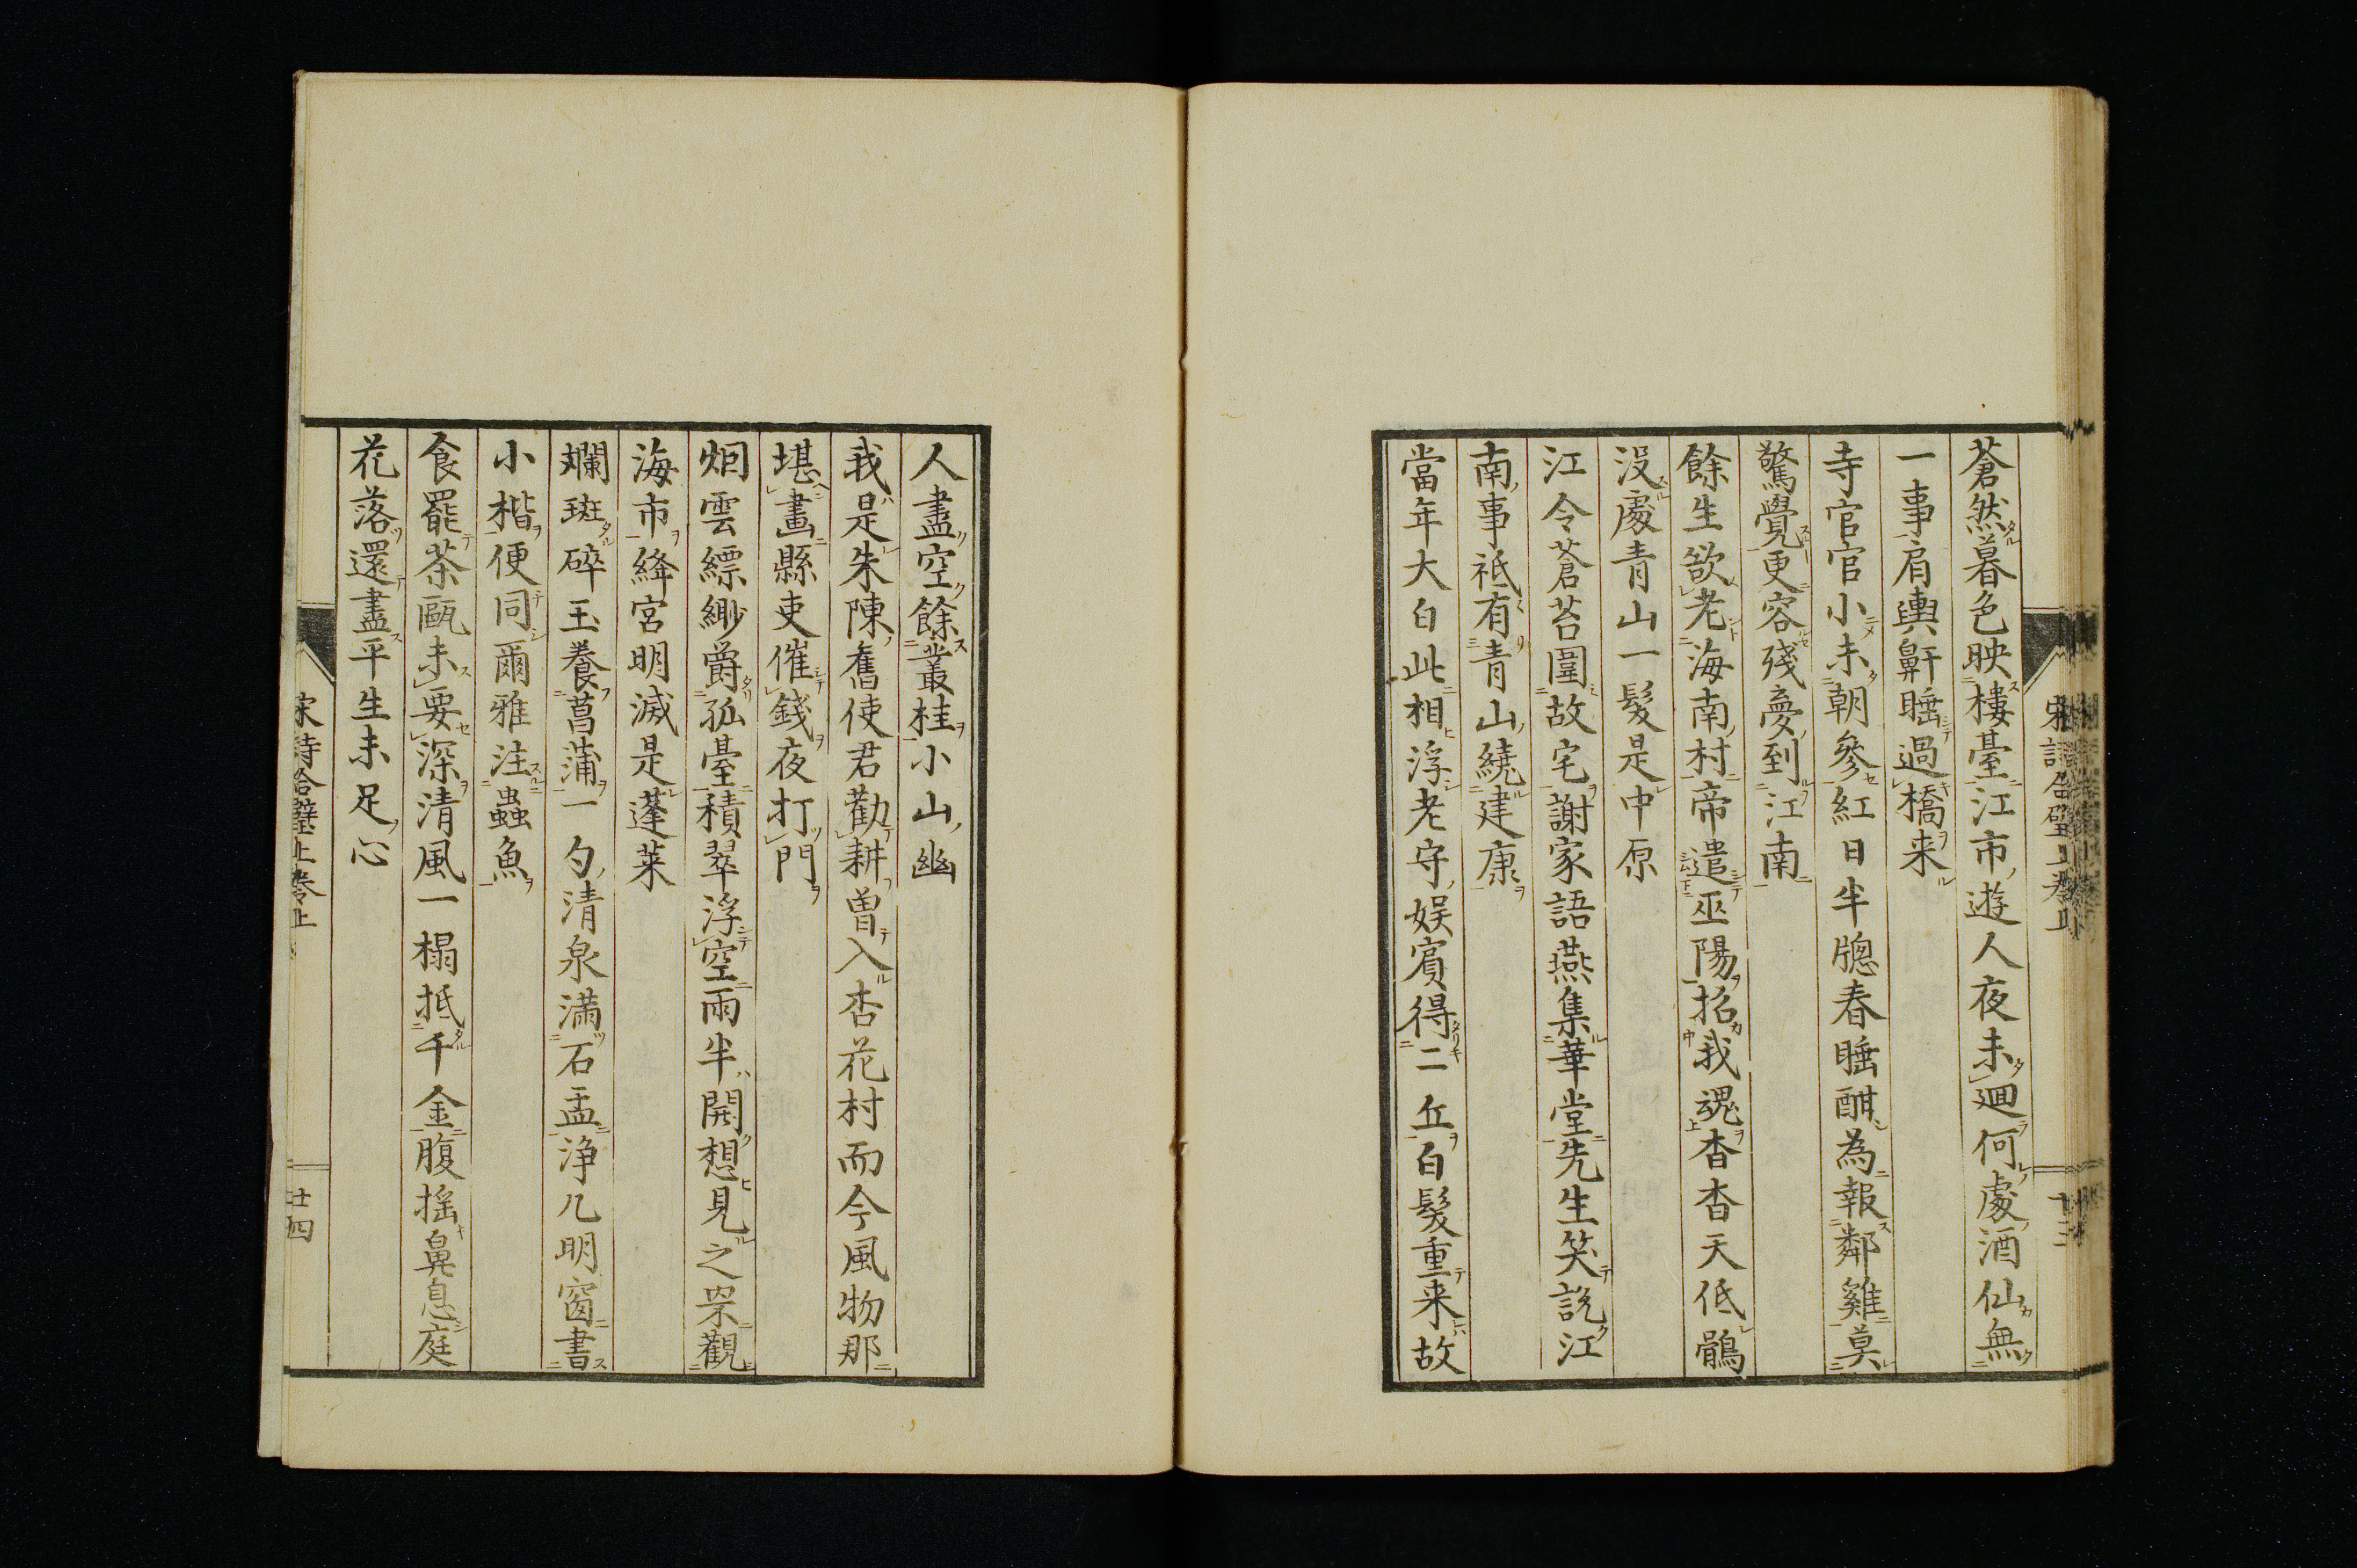 蒼然暮色映樓臺江市遊人夜未廻何處酒仙無
一事肩輿鼾睡過橋来
寺官官小未朝參紅日半牕春睡酣為報鄰雞莫
驚覺更容殘夢到江南
餘生欲老海南村帝遣巫陽招我魂杳杳天低鶻
没處青山一髮是中原
江令蒼苔圍故宅謝家語燕集華堂先生笑說江
南事祗有青山繞建康
當年大白此相浮老守娛賓得二丘白髮重来故
人盡空餘叢桂小山幽
我是朱陳舊使君勸耕曽入杏花村而今風物那
堪畫縣吏催錢夜打門
烟雲縹緲爵孤臺積翠浮空雨半開想見之罘觀
海市絳宮明滅是蓬萊
斕斑碎玉養菖蒲一勺清泉満石盂浄几明窗書
小楷便同爾雅注蟲魚
食罷茶甌未要深清風一榻抵千金腹搖鼻息庭
花落還盡平生未足心
宋詩合璧上卷上
廿四